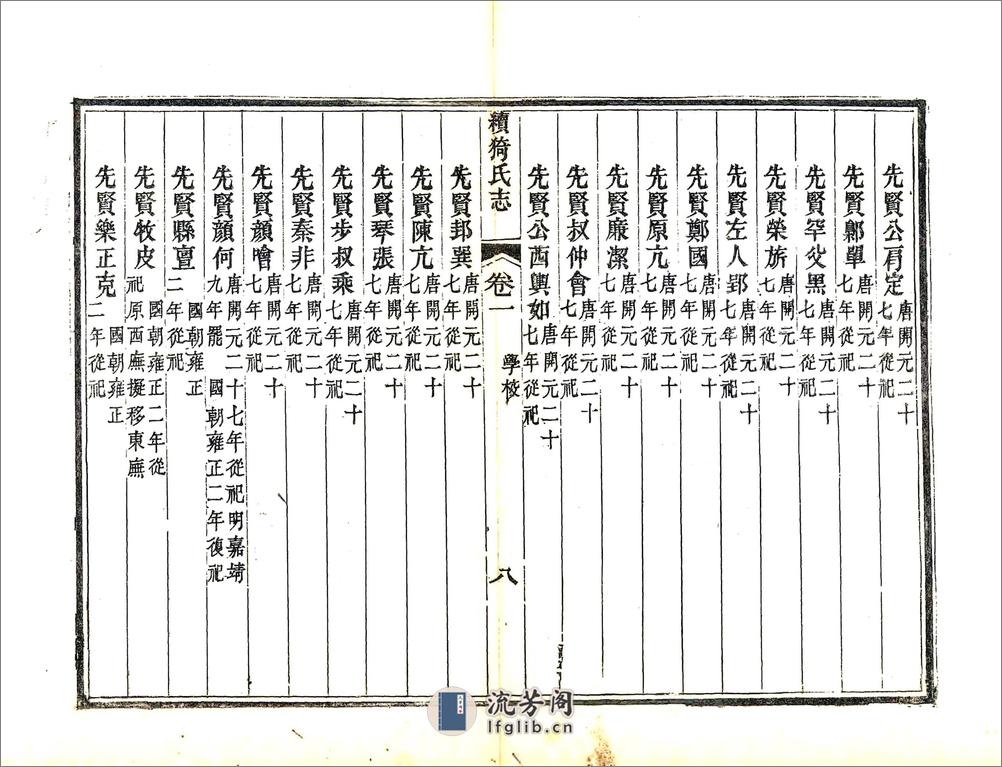 先賢公肩定唐開元二十七年從祀
先賢鄡單唐開元二十七年從祀
先賢罕父黑唐開元二十七年從祀
先賢榮旂唐開元二十七年從祀
先賢左人郢唐開元二十七年從祀
先賢鄭國唐開元二十七年從祀
先賢原亢唐開元二十七年從祀
先賢廉潔唐開元二十七年從祀
先賢叔仲會唐開元二十七年從祀
先賢公西輿如唐開元二十七年從祀
續猗氏志 卷一 學校 八
先賢邽巽唐開元二十七年從祀
先賢陳亢唐開元二十七年從祀
先賢琴張唐開元二十七年從祀
先賢步叔乘唐開元二十七年從祀
先賢秦非唐開元二十七年從祀
先賢顔噲唐開元二十七年從祀
先賢顔何唐開元二十七年從祀明嘉靖九年罷 國朝雍正二年復祀
先賢縣亶國朝雍正二年從祀
先賢牧皮國朝雍正二年從祀原西廡擬移東廡
先賢樂正克國朝雍正二年從祀
流芳阁
lfglib.cn